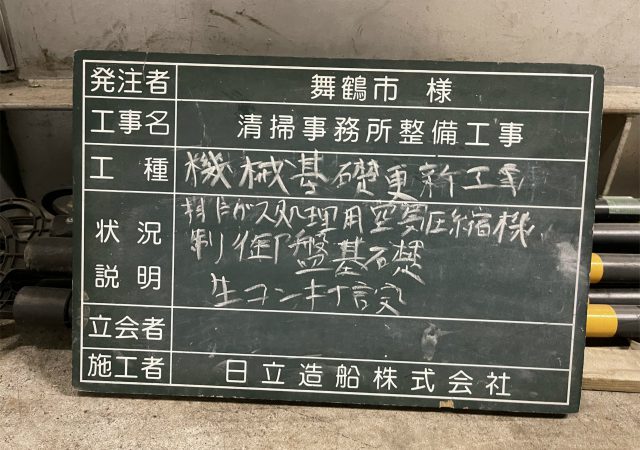 発注者 舞鶴市 様
工事名 清掃事務所整備工事
工種 機械基礎更新工事
状況説明 排ガス処理用空気圧縮機
制御盤基礎
生コンキ打設
立会者
施工者 日立造船株式会社